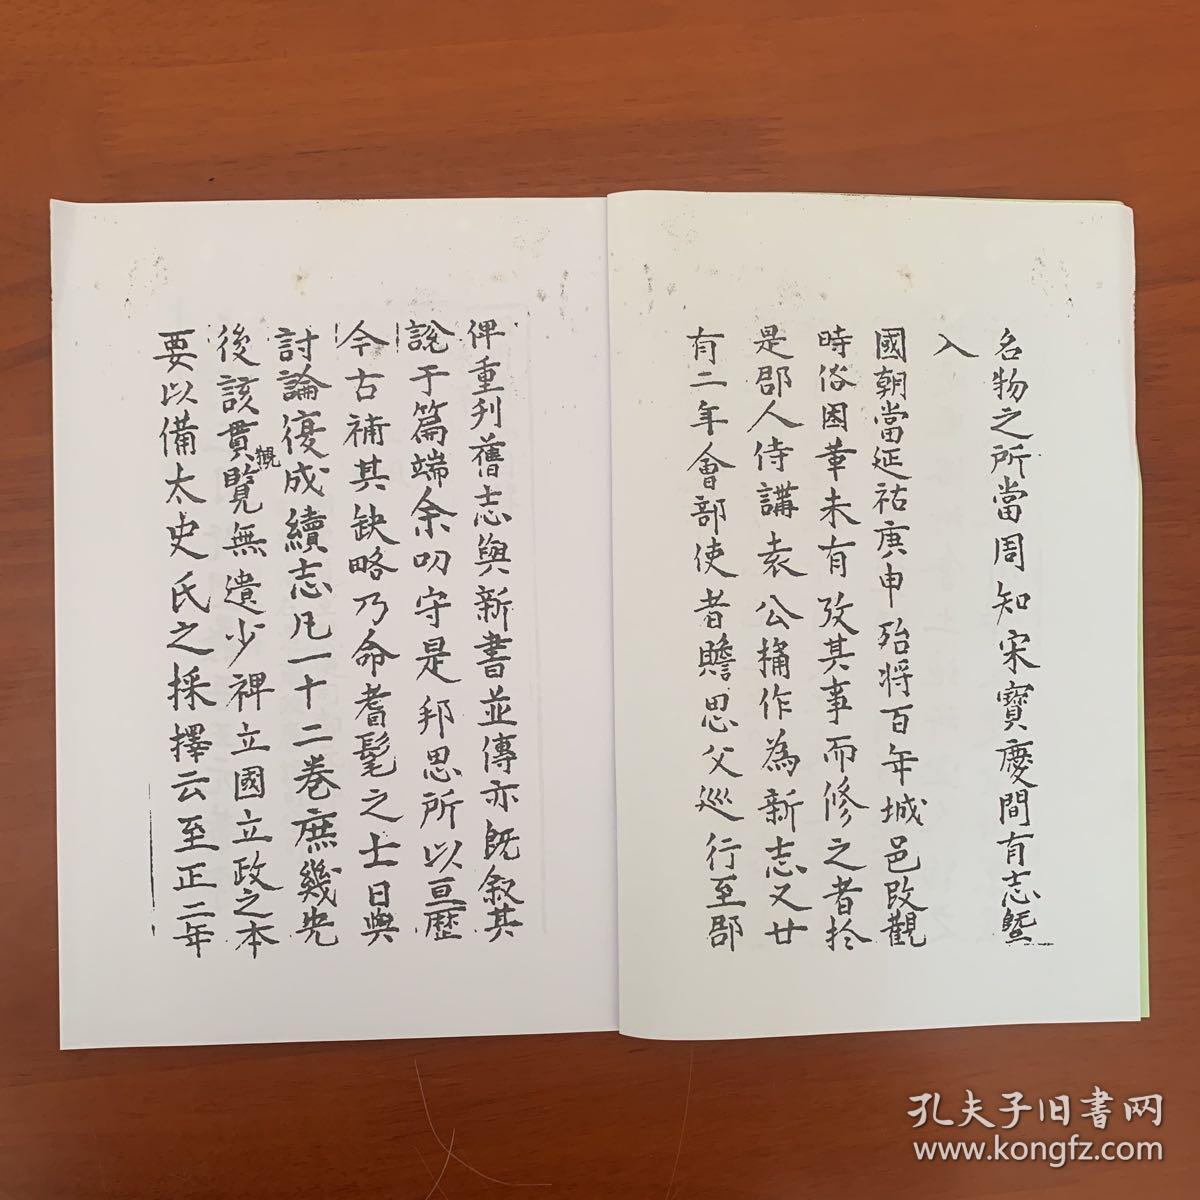 名物之所當周知宋寶慶間有志曁
入
國朝當延祐庚申殆将百年城邑改觀
時俗因革未有攷其事而修之者於
是郡人侍講袁公桷作為新志又廿
有二年會部使者贍思父廵行至郡
俾重刋舊志與新書並傳亦既叙其
說于篇端余叨守是邦思所以亘歴
今古補其缺略乃命耆髦之士日與
討論復成續志凡一十二卷庶幾先
後該貫覧無遺少禆立國立政之本
概
要以備太史氏之採擇云至正二年
孔夫子旧书网
www.kongfz.com